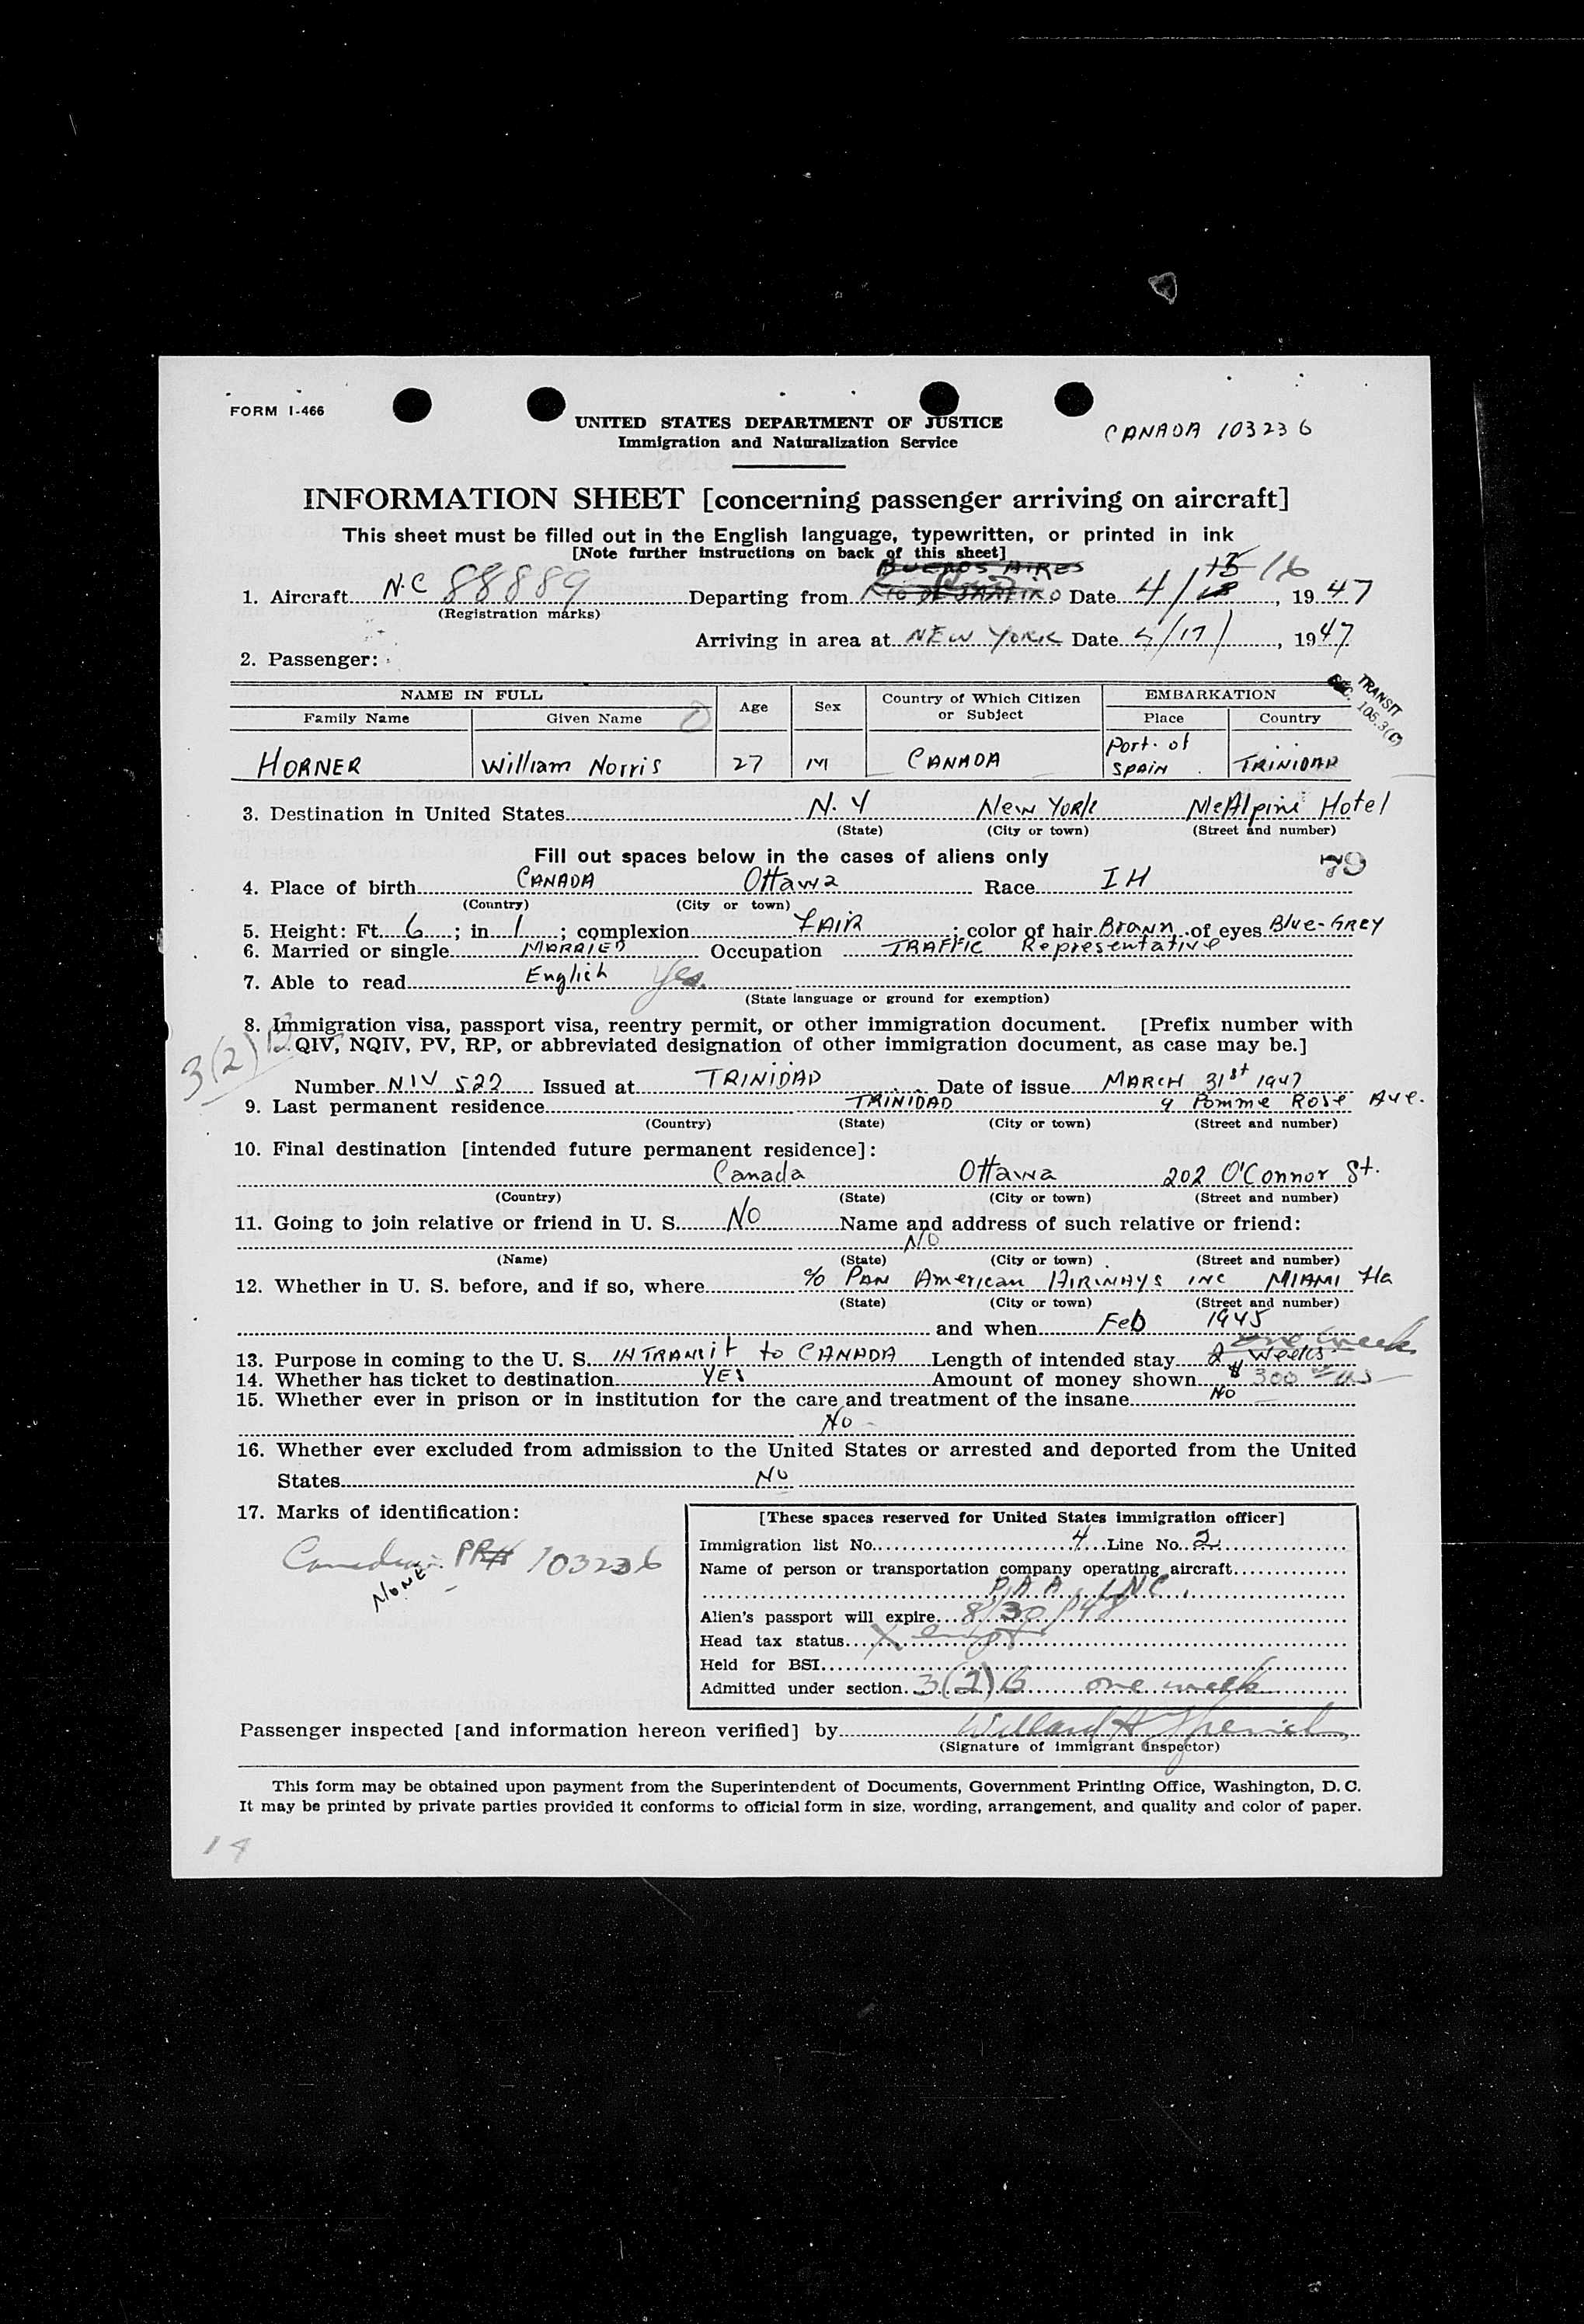 FORM I-466
UNITED STATES DEPARTMENT OF JUSTICE
Immigration and Naturalization Service
CANADA 103236
INFORMATION SHEET [concerning passenger arriving on aircraft]
This sheet must be filled out in the English language, typewritten, or printed in ink
[Note further instructions on back of this sheet]
BUENOS AIRES 15 16
1. Aircraft N.C 88889 Departing from RIO DE JANEIRO Date 4/18, 1947
(Registration marks)
Arriving in area at NEW YORK Date 4/17/, 1947
2. Passenger:
TRANSIT
SEC. 105.3(C)
NAME IN FULL Age Sex Country of Which Citizen or Subject EMBARKATION
Family Name Given Name Place Country
HORNER William Norris 27 M CANADA Port of SPAIN TRINIDAD
3. Destination in United States N.Y New York McAlpine Hotel
(State) (City or town) (Street and number)
Fill out spaces below in the cases of aliens only
79
4. Place of birth CANADA Ottawa Race IH
(Country) (City or town)
5. Height: Ft. 6; in. 1; complexion FAIR; color of hair Brown of eyes Blue-GREY
6. Married or single MARRIED Occupation TRAFFIC Representative
7. Able to read English Yes.
(State language or ground for exemption)
8. Immigration visa, passport visa, reentry permit, or other immigration document. [Prefix number with
QIV, NQIV, PV, RP, or abbreviated designation of other immigration document, as case may be.]
3(2)
Number NIV 522 Issued at TRINIDAD Date of issue MARCH 31st 1947
9. Last permanent residence TRINIDAD 9 Pomme Rose Ave.
(Country) (State) (City or town) (Street and number)
10. Final destination [intended future permanent residece]:
Canada Ottawa 202 O'Connor St.
(Country) (State) (City or town) (Street and number)
11. Going to join relative or friend in U. S. NO Name and address of such relative or friend:
NO
(Name) (State) (City or town) (Street and number)
12. Whether in U. S. before, and if so, where % PAN American AIRWAYS INC MIAMI Fla
(State) (City or town) (Street and number)
and when Feb 1945
one week
13. Purpose in coming to the U. S. IN TRANSIT to CANADA Length of intended stay 2 weeks
14. Whether has ticket to destination YES Amount of money shown $300 US
15. Whether ever in prison or in institution for the care and treatment of the insane NO
No
16. Whether ever excluded from admission to the United States or arrested and deported from the United
States No
17. Marks of identification:
Canadian PP# 103236
NONE
[These spaces reserved for United States immigration officer]
Immigration list No. 4 Line No. 2
Name of person or transportation company operating aircraft
P.A.A., INC.
Alien's passport will expire 8/30/48
Head tax status Exempt
Held for BSI
Admitted under section 3(2)B one week
Passenger inspected [and information hereon verified] by Willard A
(Signature of immigrant inspector)
This form may be obtained upon payment from the Superintendent of Documents, Government Printing Office, Washington, D. C.
It may be printed by private parties provided it conforms to official form in size, wording, arrangement, and quality and color of paper.